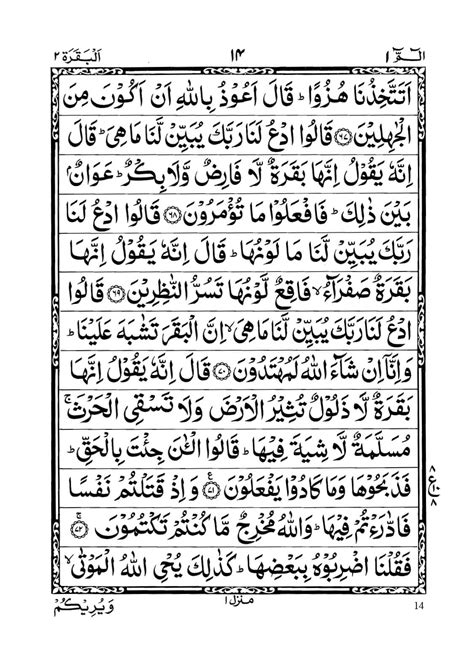 الٓمّٓ ١ ١٤ اَلْبَقَرَة ٢
اَتَتَّخِذُنَا هُزُوًا ؕ قَالَ اَعُوْذُ بِاللّٰهِ اَنْ اَكُوْنَ مِنَ
الْجٰهِلِيْنَ ﴿۶۷﴾ قَالُوا ادْعُ لَنَا رَبَّكَ يُبَيِّنْ لَّنَا مَا هِيَ ؕ قَالَ
اِنَّهٗ يَقُوْلُ اِنَّهَا بَقَرَةٌ لَّا فَارِضٌ وَّلَا بِكْرٌ ؕ عَوَانٌۢ
بَيْنَ ذٰلِكَ ؕ فَافْعَلُوْا مَا تُؤْمَرُوْنَ ﴿۶۸﴾ قَالُوا ادْعُ لَنَا
رَبَّكَ يُبَيِّنْ لَّنَا مَا لَوْنُهَا ؕ قَالَ اِنَّهٗ يَقُوْلُ اِنَّهَا
بَقَرَةٌ صَفْرَآءُ ۙ فَاقِعٌ لَّوْنُهَا تَسُرُّ النّٰظِرِيْنَ ﴿۶۹﴾ قَالُوا
ادْعُ لَنَا رَبَّكَ يُبَيِّنْ لَّنَا مَا هِيَ ۙ اِنَّ الْبَقَرَ تَشٰبَهَ عَلَيْنَا ؕ
وَاِنَّاۤ اِنْ شَآءَ اللّٰهُ لَمُهْتَدُوْنَ ﴿۷۰﴾ قَالَ اِنَّهٗ يَقُوْلُ اِنَّهَا
بَقَرَةٌ لَّا ذَلُوْلٌ تُثِيْرُ الْاَرْضَ وَلَا تَسْقِى الْحَرْثَ ۚ
مُسَلَّمَةٌ لَّا شِيَةَ فِيْهَا ؕ قَالُوا الْـٰٔنَ جِئْتَ بِالْحَقِّ ؕ
فَذَبَحُوْهَا وَمَا كَادُوْا يَفْعَلُوْنَ ﴿۷۱﴾ وَاِذْ قَتَلْتُمْ نَفْسًا
فَادّٰرَءْتُمْ فِيْهَا ؕ وَاللّٰهُ مُخْرِجٌ مَّا كُنْتُمْ تَكْتُمُوْنَ ﴿۷۲﴾
فَقُلْنَا اضْرِبُوْهُ بِبَعْضِهَا ؕ كَذٰلِكَ يُحْيِ اللّٰهُ الْمَوْتٰى ۙ
٨ ع ١٠ ٨
منزل ١
وَيُرِيْكُمْ
14